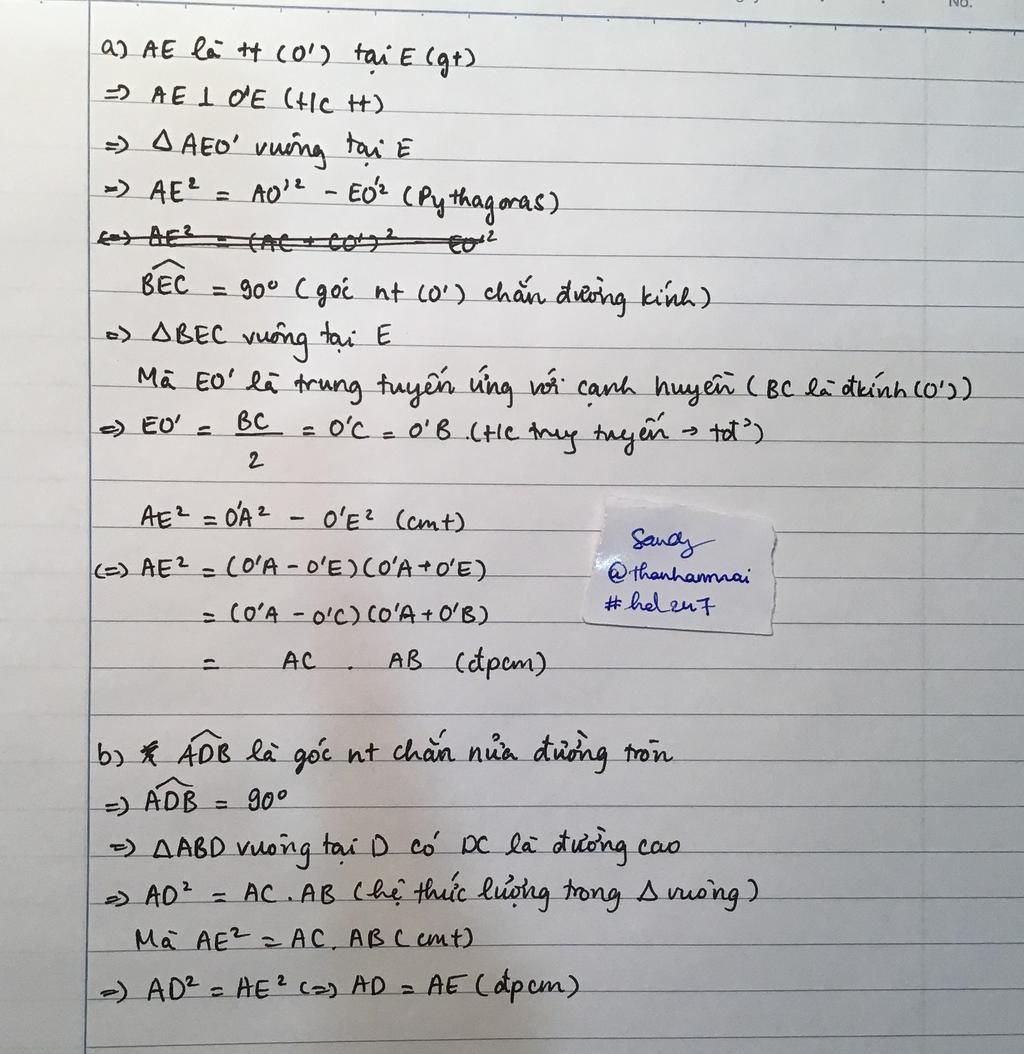 No.
a) AE là tt (O') tại E (gt)
=> AE ⊥ O'E (t/c tt)
=> Δ AEO' vuông tại E
=> AE² = AO'² - EO'² (Pythagoras)
<=> AE² = (AC + CO')² - EO'²
BEC = 90° (góc nt (O') chắn đường kính)
=> ΔBEC vuông tại E
Mà EO' là trung tuyến ứng với cạnh huyền (BC là đkính (O'))
=> EO' = BC/2 = O'C = O'B (t/c trung tuyến →
AE² = O'A² - O'E² (cmt)
<=> AE² = (O'A - O'E)(O'A + O'E)
= (O'A - O'C)(O'A + O'B)
= AC . AB (đpcm)
Sandy
@thanhanmai
#hel247
b) ADB là góc nt chắn nửa đường tròn
=> ADB = 90°
=> ΔABD vuông tại D có DC là đường cao
=> AD² = AC . AB (hệ thức lượng trong Δ vuông)
Mà AE² = AC . AB (cmt)
=> AD² = AE² <=> AD = AE (đpcm)